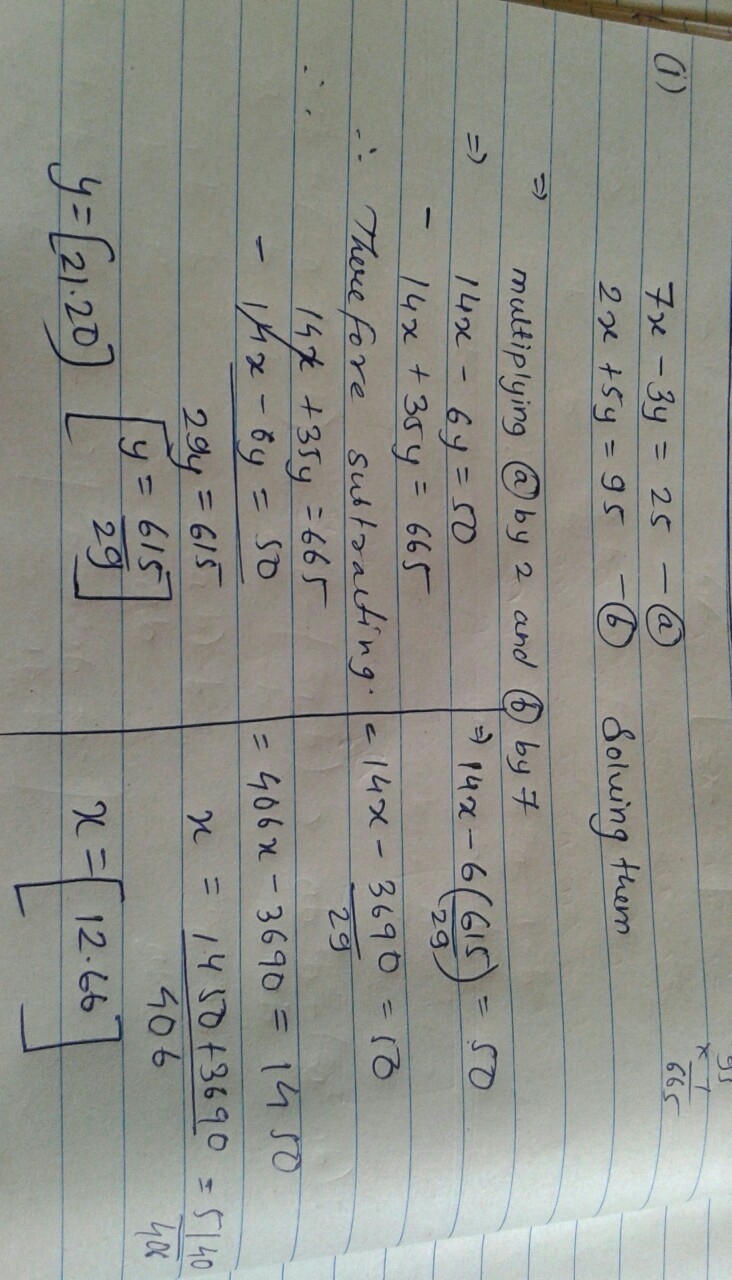 95
× 7
665
(i) 7x - 3y = 25 - ⓐ
2x + 5y = 95 - ⓑ Solving them
⇒ multiplying ⓐ by 2 and ⓑ by 7
⇒ 14x - 6y = 50
- 14x + 35y = 665
∴ Therefore subtracting.
∴ 14x + 35y = 665
- 14x - 6y = 50
29y = 615
[y = 615/29]
y = [21.20]
⇒ 14x - 6(615/29) = 50
= 14x - 3690/29 = 50
= 406x - 3690 = 1450
x = 1450 + 3690/406 = 5140/406
x = [12.66]